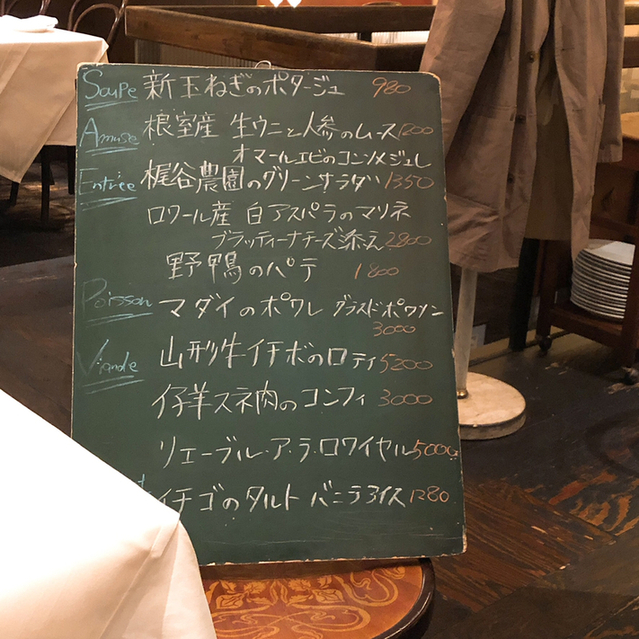 Soupe 新玉ねぎのポタージュ 980
Amuse 根室産 生ウニと人参のムース 1200
オマールエビのコンソメジュレ
Entrée 梶谷農園のグリーンサラダ 1350
ロワール産 白アスパラのマリネ
ブラッティーナチーズ添え 2800
野鴨のパテ 1800
Poisson マダイのポワレ グラスドポワソン
3000
Viande 山形牛イチボのロティ 5200
仔羊スネ肉のコンフィ 3000
リエーブル・ア・ラ・ロワイヤル 5000
イチゴのタルト バニラアイス 1280